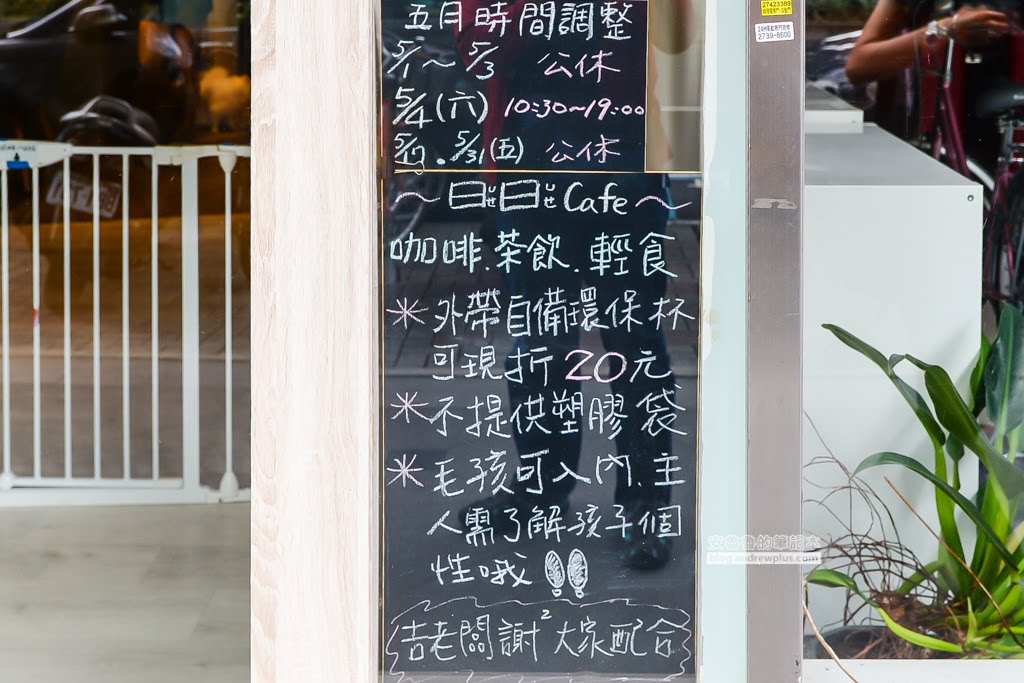 五月時間調整
5/1～5/3 公休
5/4(六) 10:30~19:00
5/13.5/31(五) 公休
～日ㄝ日ㄝCafe～
咖啡.茶飲.輕食
＊外帶自備環保杯
可現折20元
＊不提供塑膠袋
＊毛孩可入內.主
人需了解孩子個
性哦
吉老闆謝2大家配合
27423369
2739-8600
安魯魯的筆記本
blog.andrewplus.com